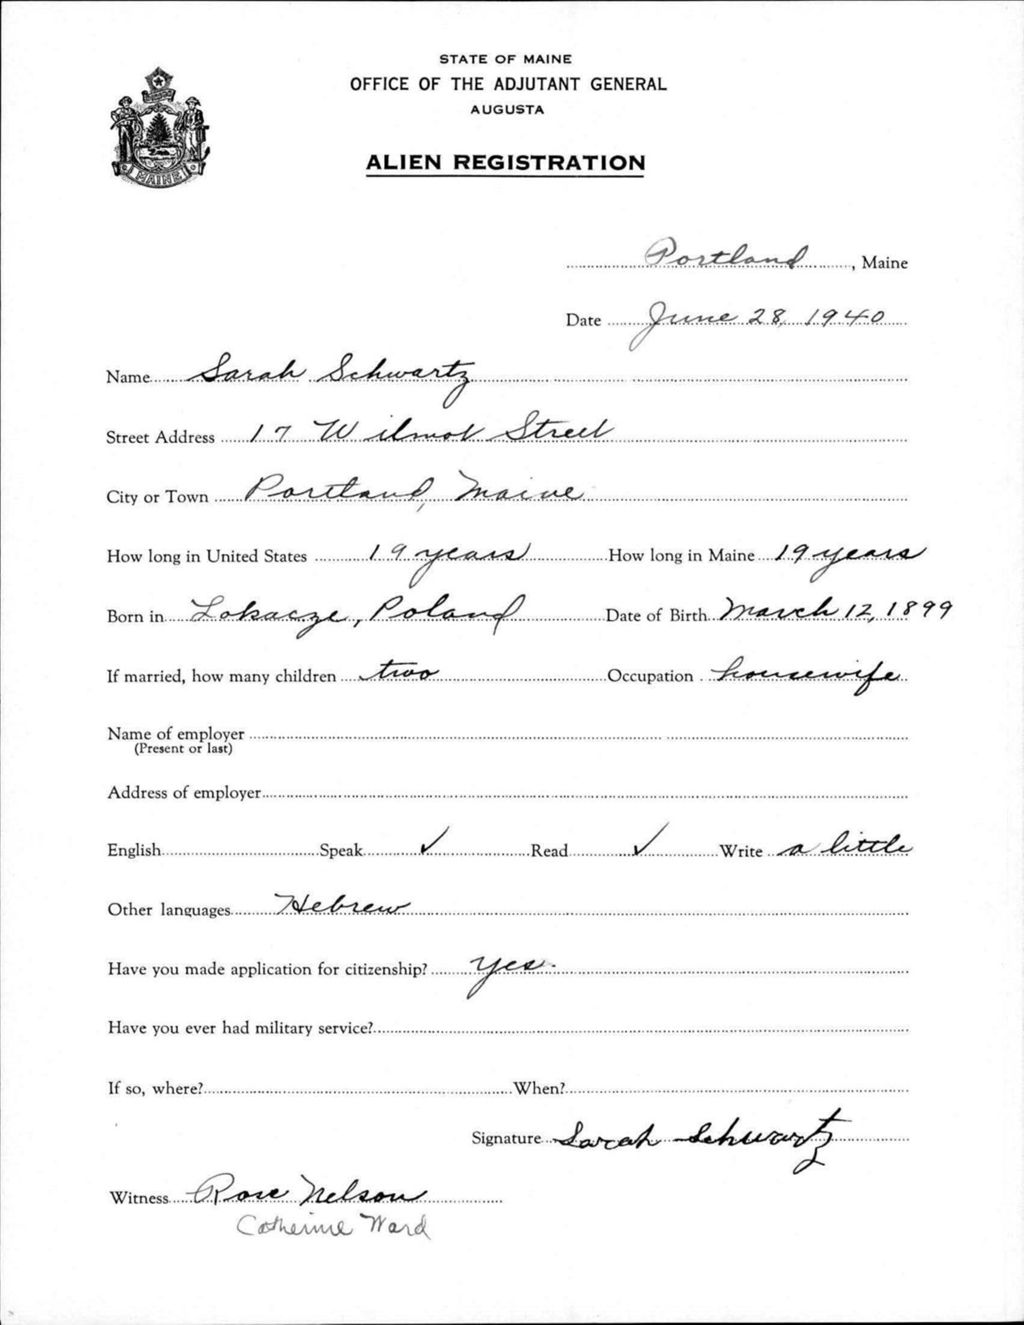 STATE OF MAINE
OFFICE OF THE ADJUTANT GENERAL
AUGUSTA
ALIEN REGISTRATION
MAINE
Portland, Maine
Date June 28, 1940
Name Sarah Schwartz
Street Address 17 Wilmot Street
City or Town Portland, Maine
How long in United States 19 years How long in Maine 19 years
Born in Lokacze, Poland Date of Birth March 12, 1899
If married, how many children two Occupation housewife
Name of employer
(Present or last)
Address of employer
English Speak ✓ Read ✓ Write a little
Other languages Hebrew
Have you made application for citizenship? Yes.
Have you ever had military service?
If so, where? When?
Signature Sarah Schwartz
Witness Rose Nelson
Catherine Ward